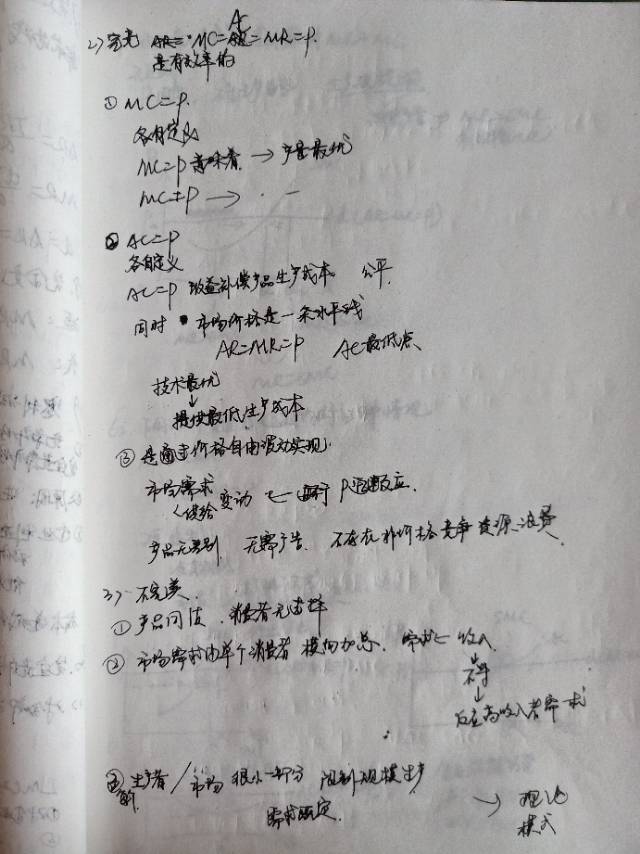 AC
2) 完竞 MC=AR=MR=P.
是有效率的
① MC=P.
各自定义
MC=P 意味着 → 产量最优
MC≠P →
② AC=P
各自定义
AC=P 收益补偿产品生产成本 公平.
同时 市场价格是一条水平线
AR=MR=P AC最低点
技术最优
↓
提供最低生产成本
③ 是通过价格自由波动实现
市场需求
供给 变动 ← P 反应.
产品无差别 无需广告. 不存在非价格竞争 资源浪费
3) 不完美.
① 产品同质, 消费者无选择
② 市场需求由单个消费者横向加总. 需求← 收入
不平
↓
反应高收入者需求
③ 生产者/市场 很小一部分 限制规模生产
需求既定. → 理论
模式